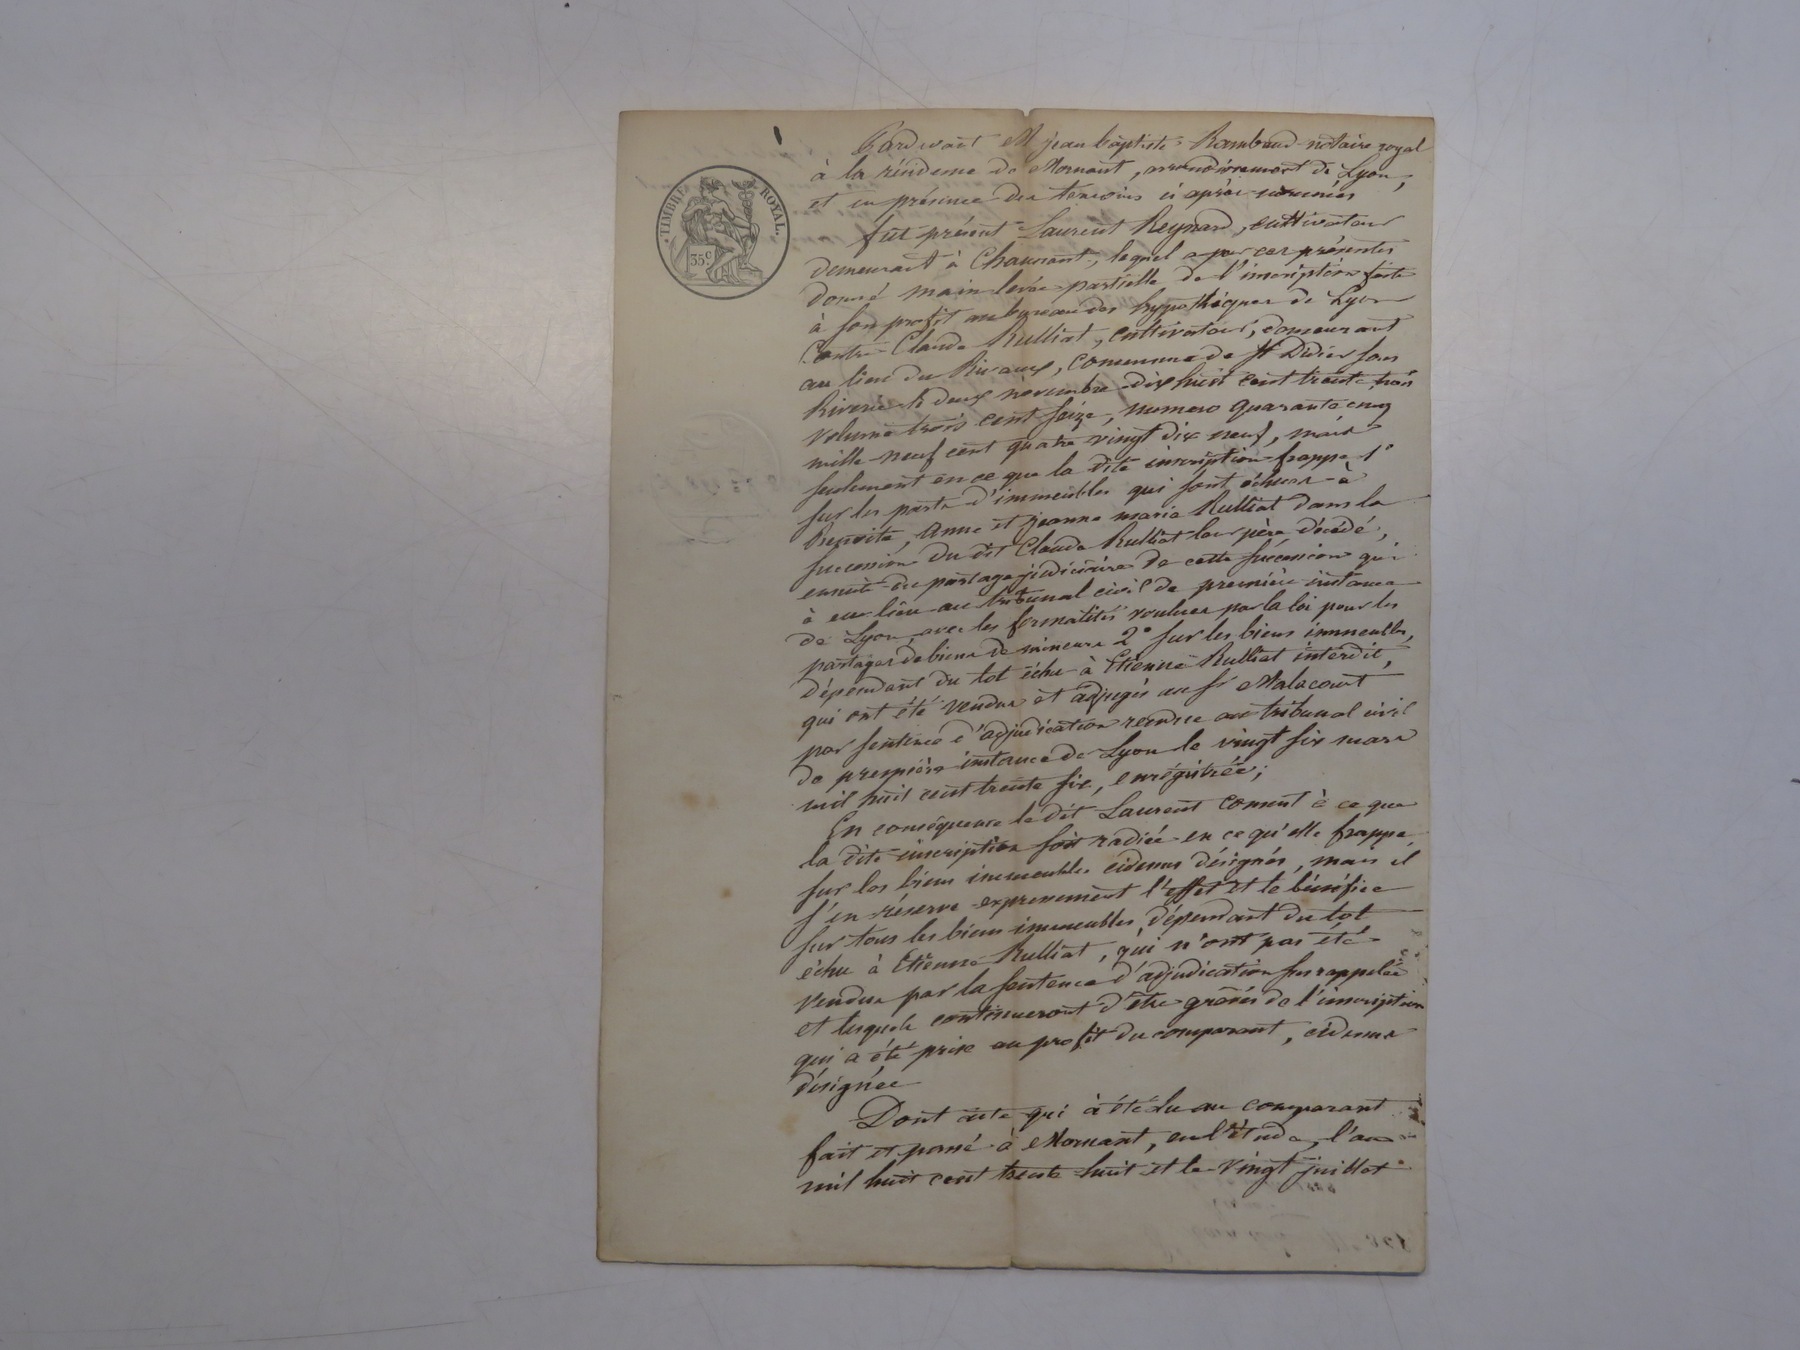 TIMBRE ROYAL.
35c
Pardevant Me jean baptiste Rambaud notaire royal
à la résidence de Mornant, arrondissement de Lyon,
et en présence des temoins ci après nommés
fut présent Laurent Reynard, cultivateur
demeurant à Chaussant, lequel a par ces présentes
donné main levée partielle de l'inscription faite
à son profit au bureau des hypothèques de Lyon
Contre Claude Rulliat, cultivateur, demeurant
au lieu du Rivaux, commune de St Didier sous
Riverie le deux novembre dix huit cent trente trois
volume trois cent seize, numero quarante cinq
mille neuf cent quatre vingt dix neuf, mais
seulement en ce que la dite inscription frappe 1°
sur les parts d'immeubles qui sont échues à
Benoite, Anne et jeanne marie Rulliat dans la
succession du dit Claude Rulliat leur père décédé,
ensuite du partage judiciaire de cette succession qui
à eu lieu au tribunal civil de première instance
de Lyon avec les formalités voulues par la loi pour les
partages de biens de mineurs 2° sur les biens immeubles,
dépendant du lot échu à Etienne Rulliat interdit,
qui ont été vendus et adjugés au sr Malacourt
par sentence d'adjudication rendue au tribunal civil
de première instance de Lyon le vingt six mars
mil huit cent trente six, enrégistrée;
En conséquence le dit Laurent consent à ce que
la dite inscription soit radiée en ce qu'elle frappe
sur les biens immeubles cidessus désignés, mais il
s'en réserve expressement l'effet et le bénéfice
sur tous les biens immeubles, dépendant du lot
échu à Etienne Rulliat, qui n'ont pas été
vendus par la sentence d'adjudication susrappelée
et lesquels continueront d'être grevés de l'inscription
qui a été prise au profit du comparant, cidessus
désignée
Dont acte qui à été lu au comparant
fait et passé à Mornant, en l'étude, l'an
mil huit cent trente huit et le vingt juillet